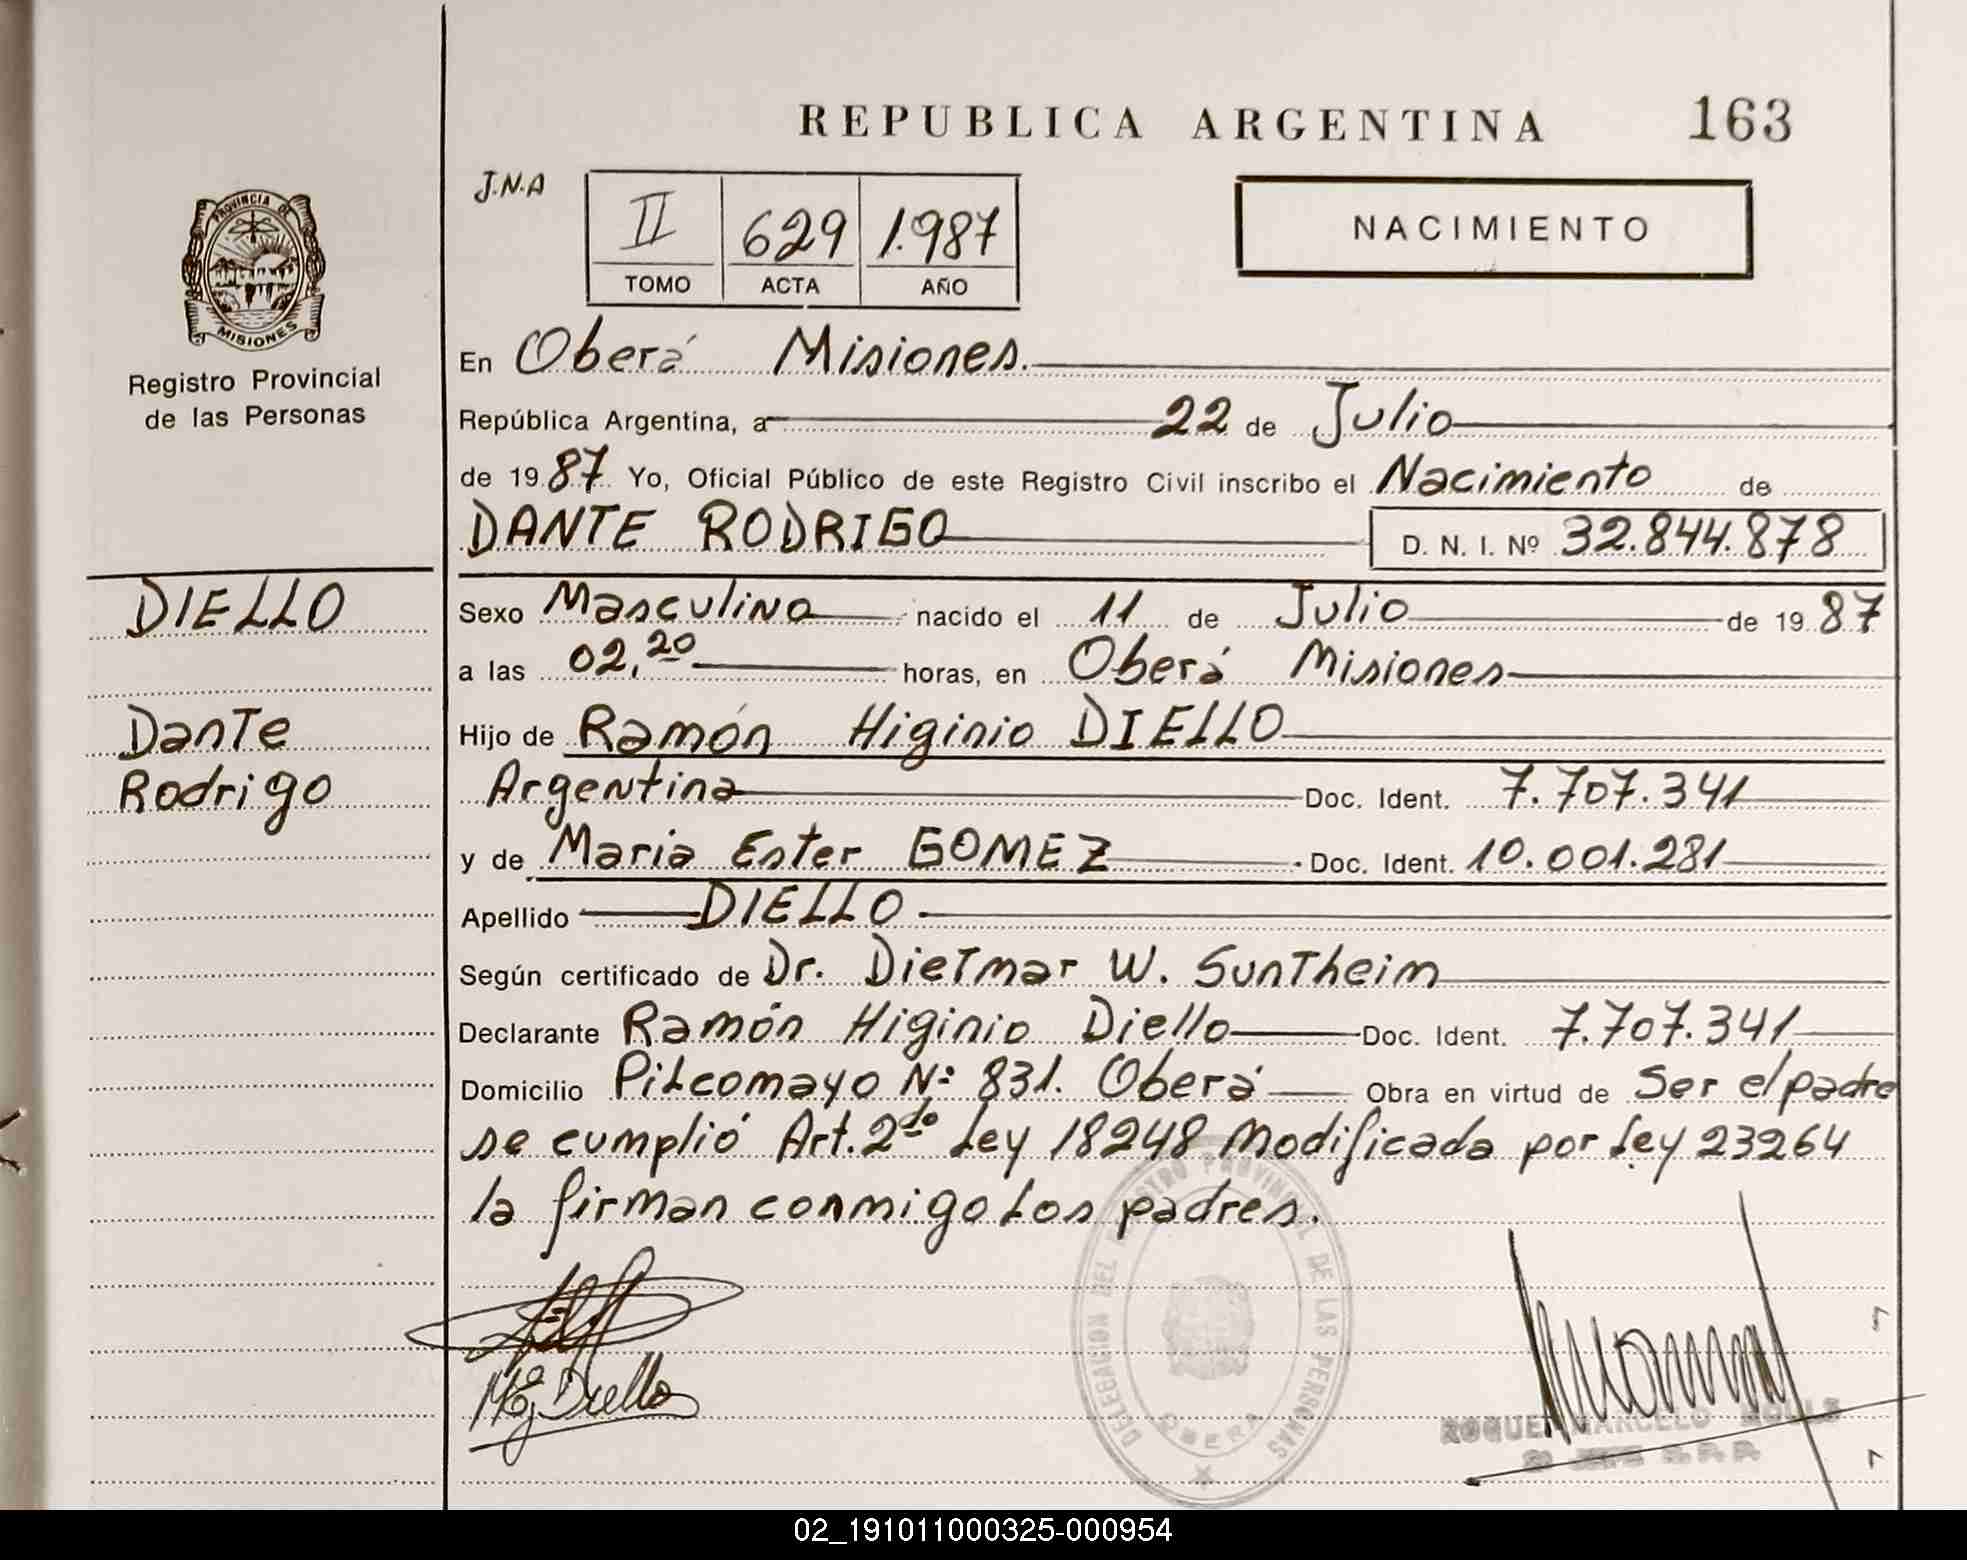 REPUBLICA ARGENTINA 163
J.N.A
II 629 1.987
TOMO ACTA AÑO
NACIMIENTO
PROVINCIA DE
MISIONES
Registro Provincial
de las Personas
En Oberá Misiones.
República Argentina, a 22 de Julio
de 19 87 Yo, Oficial Público de este Registro Civil inscribo el Nacimiento de
DANTE RODRIGO D. N. I. Nº 32.844.878
DIELLO
Dante
Rodrigo
Sexo Masculino nacido el 11 de Julio de 19 87
a las 02,20 horas, en Oberá Misiones
Hijo de Ramón Higinio DIELLO
Argentina Doc. Ident. 7.707.341
y de Maria Ester GOMEZ Doc. Ident. 10.001.281
Apellido DIELLO
Según certificado de Dr. Dietmar W. Suntheim
Declarante Ramón Higinio Diello Doc. Ident. 7.707.341
Domicilio Pilcomayo Nº 831. Oberá Obra en virtud de Ser el padre
se cumplió Art. 2do Ley 18248 Modificada por Ley 23264
la firman conmigo Los padres.
DELEGACION DEL REGISTRO PROVINCIAL DE LAS PERSONAS
OBERA
Diello
ROQUE MARCELO
02_191011000325-000954